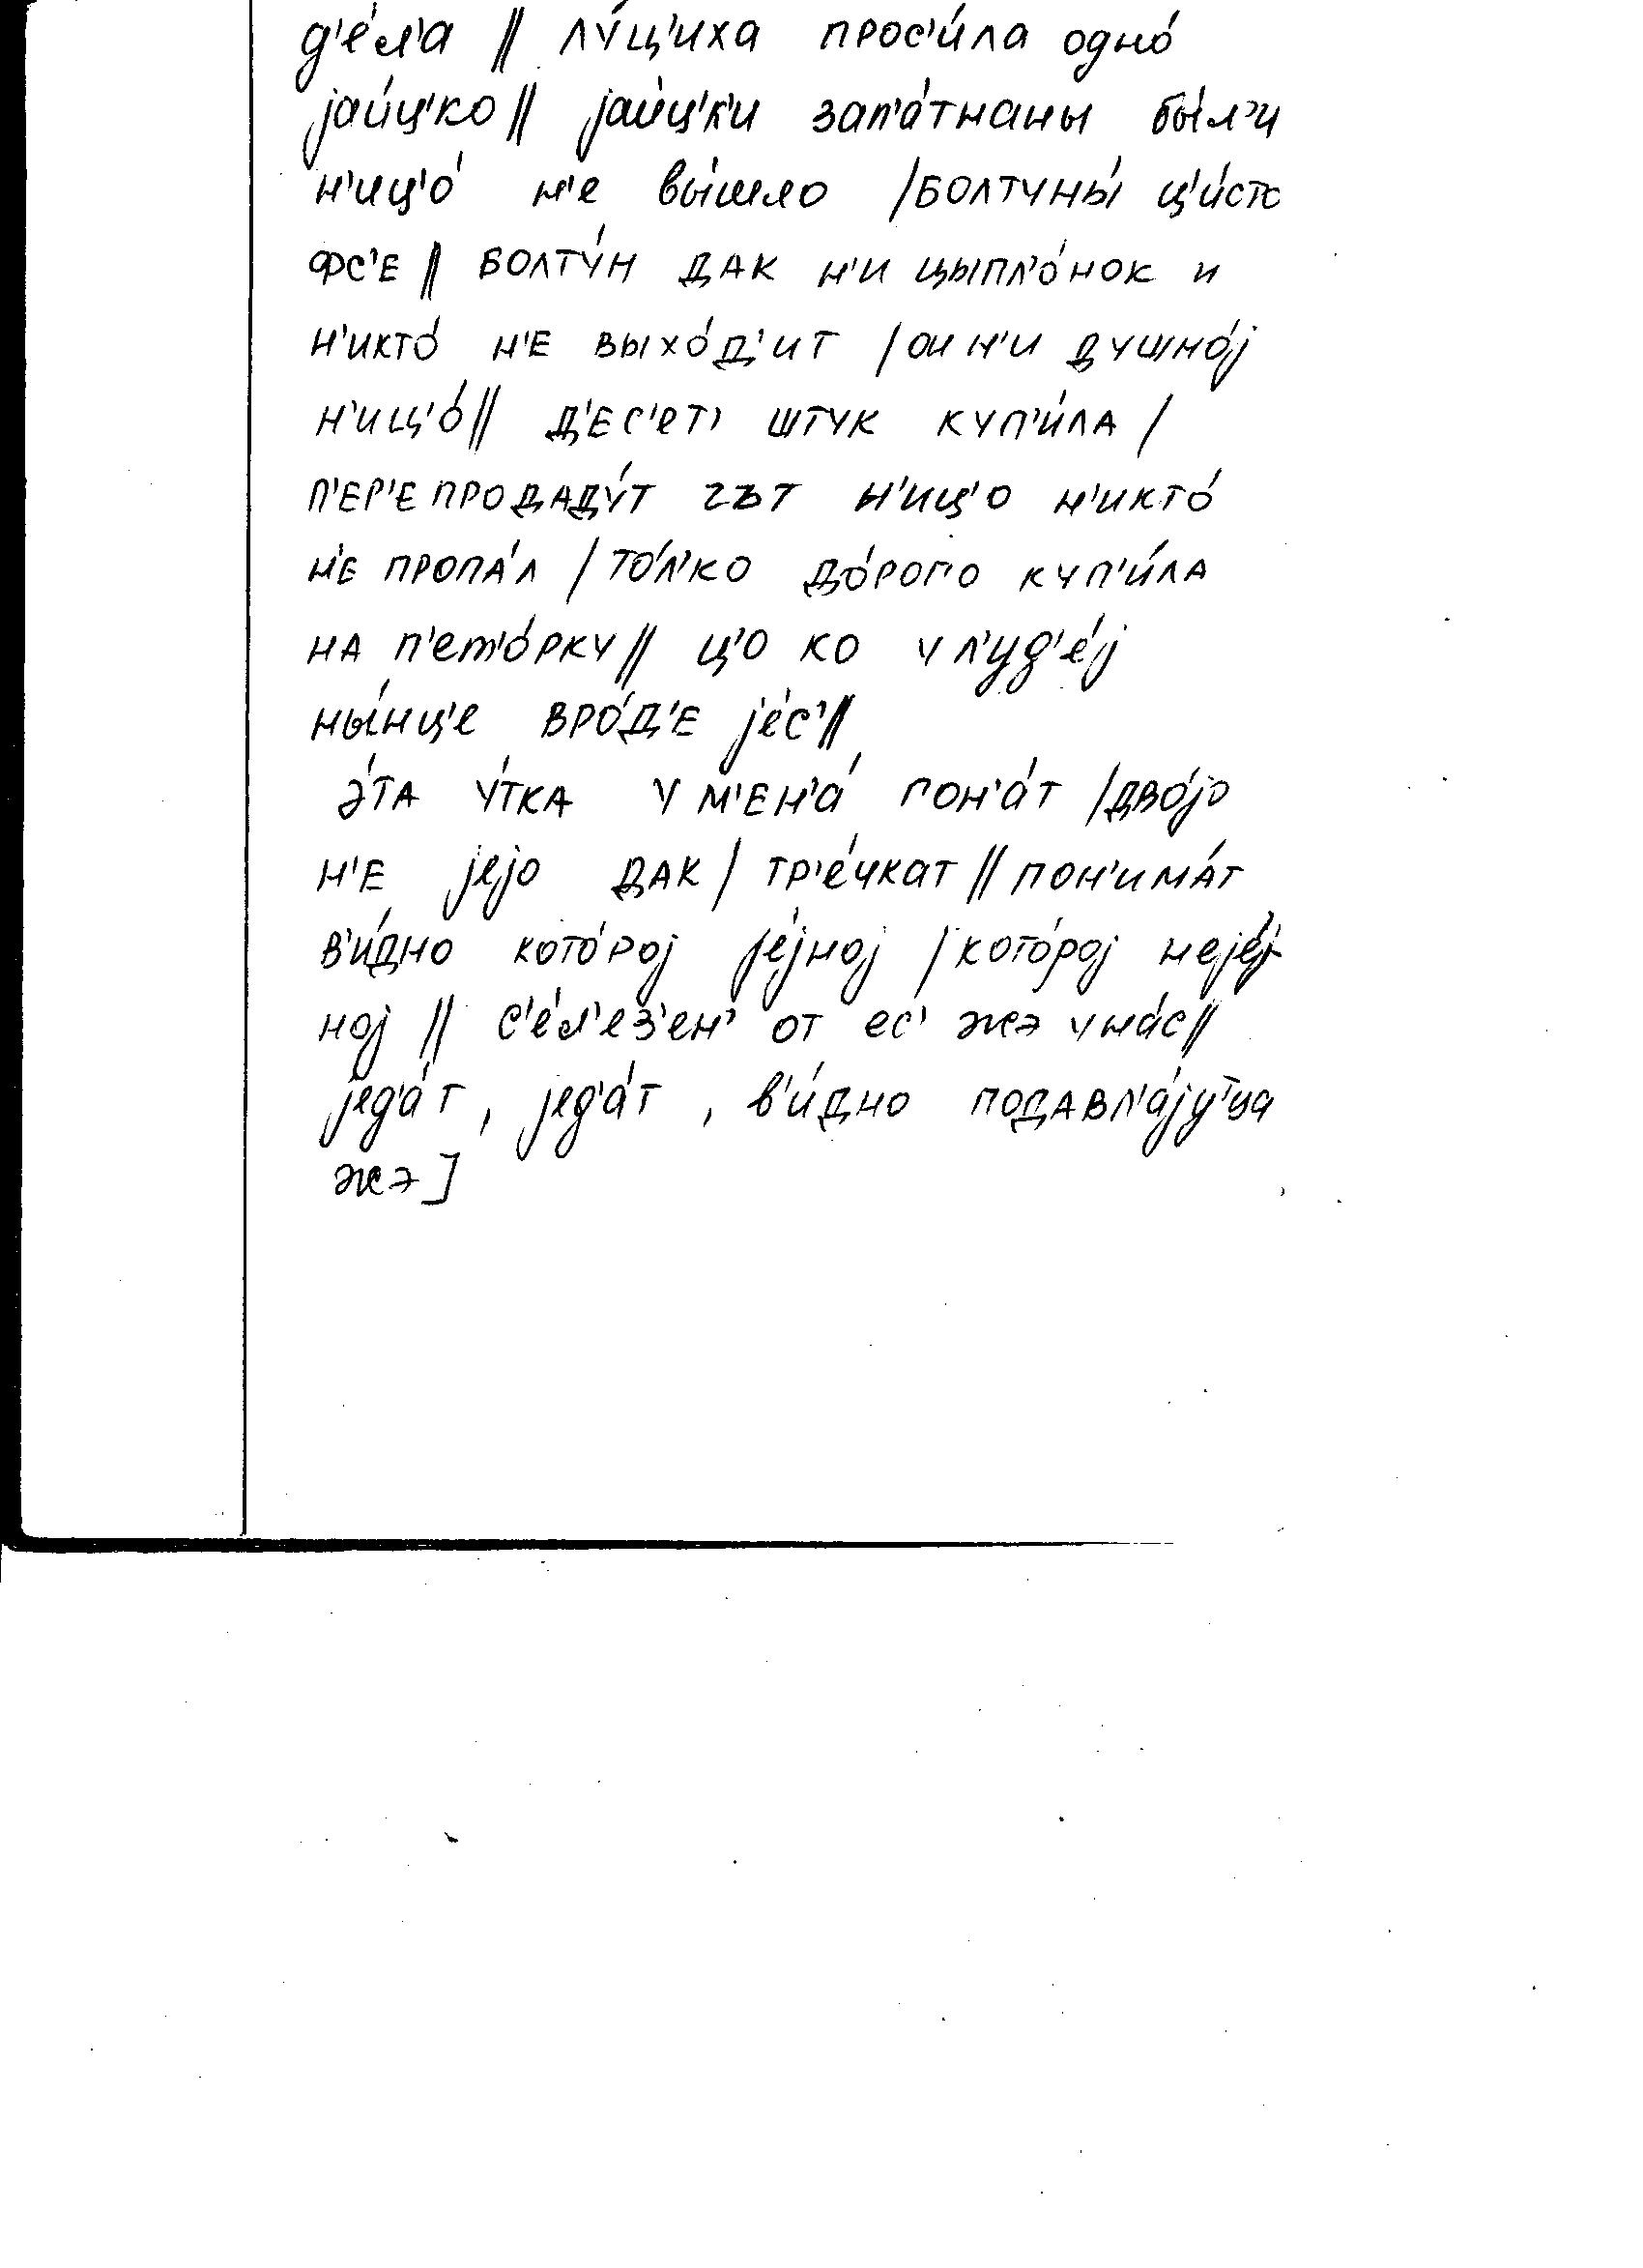 д'е́л'а || лу́ц'иха прос'и́ла одно́
jаи́ц'ко || jаи́ц'к'и зап'а́тнаны бы́л'и
н'иц'о́ н'е вы́шло / болтуны́ ц'и́сто
фс'е || болту́н дак н'и цыпл'о́нок и
н'икто́ н'е выхо́д'ит / он н'и душно́j
н'иц'о́ || д'ес'ет' штук куп'и́ла /
п'ер'епродаду́т гът н'иц'о н'икто́
н'е пропа́л / то́л'ко до́рого куп'и́ла
на п'ет'о́рку || ц'о ко у л'уд'е́j
ны́нц'е вро́д'е jе́с' ||
э́та у́тка у м'ен'а́ пон'а́т / дво́jо
н'е jеjо дак / тр'е́чкат || пон'има́т
в'и́дно кото́роj jе́jноj / кото́роj неjе́j
ноj || с'е́л'ез'ен' от ес' жэ у на́с ||
jед'а́т, jед'а́т, в'и́дно подавл'а́jуц'ца
жэ]